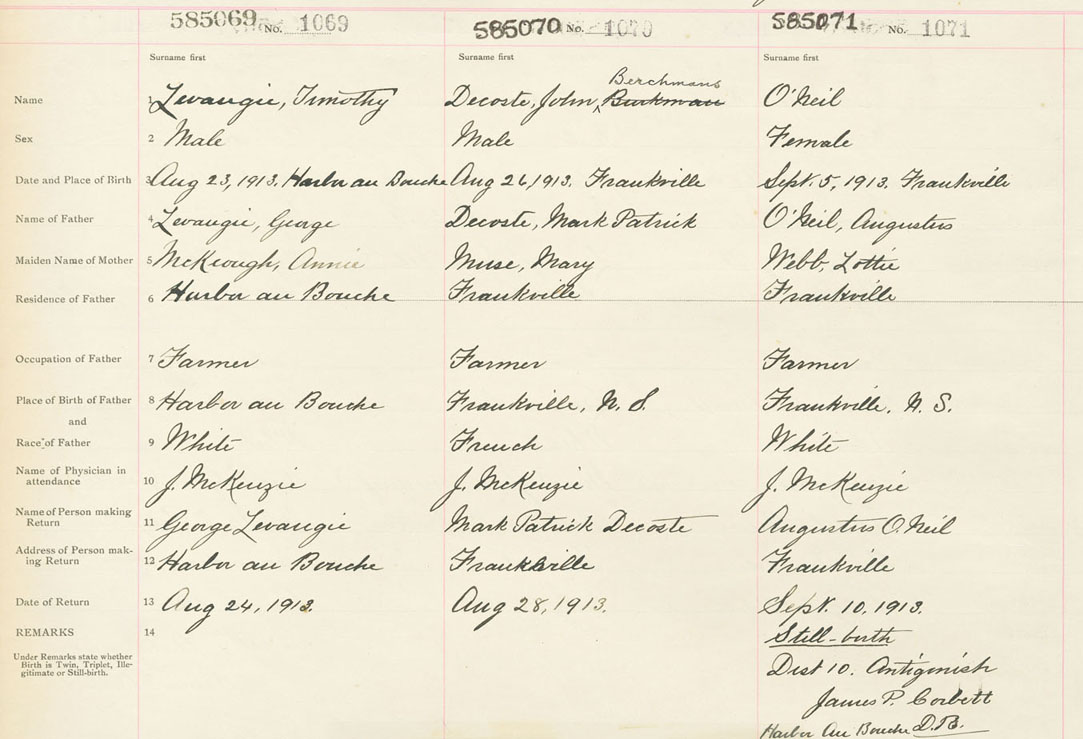 585069 No. 1069 585070 No. 1070 585071 No. 1071
Surname first Surname first Surname first
Berchmans
Name 1 Levangie, Timothy Decoste, John, Burkman O'Neil
Sex 2 Male Male Female
Date and Place of Birth 3 Aug 23, 1913. Harbor au Bouche Aug 26, 1913. Frankville Sept. 5, 1913. Frankville
Name of Father 4 Levangie, George Decoste, Mark Patrick O'Neil, Augustus
Maiden Name of Mother 5 McKeough, Annie Muse, Mary Webb, Lottie
Residence of Father 6 Harbor au Bouche Frankville Frankville
Occupation of Father 7 Farmer Farmer Farmer
Place of Birth of Father 8 Harbor au Bouche Frankville, N. S. Frankville, N. S.
and
Race of Father 9 White French White
Name of Physician in
attendance 10 J. McKenzie J. McKenzie J. McKenzie
Name of Person making
Return 11 George Levangie Mark Patrick Decoste Augustus O'Neil
Address of Person mak-
ing Return 12 Harbor au Bouche Frankville Frankville
Date of Return 13 Aug 24, 1913. Aug 28, 1913. Sept. 10, 1913.
REMARKS 14 Still-birth
Under Remarks state whether
Birth is Twin, Triplet, Ille-
gitimate or Still-birth.
Dist 10. Antigonish
James P. Corbett
Harbor Au Bouche D.R.